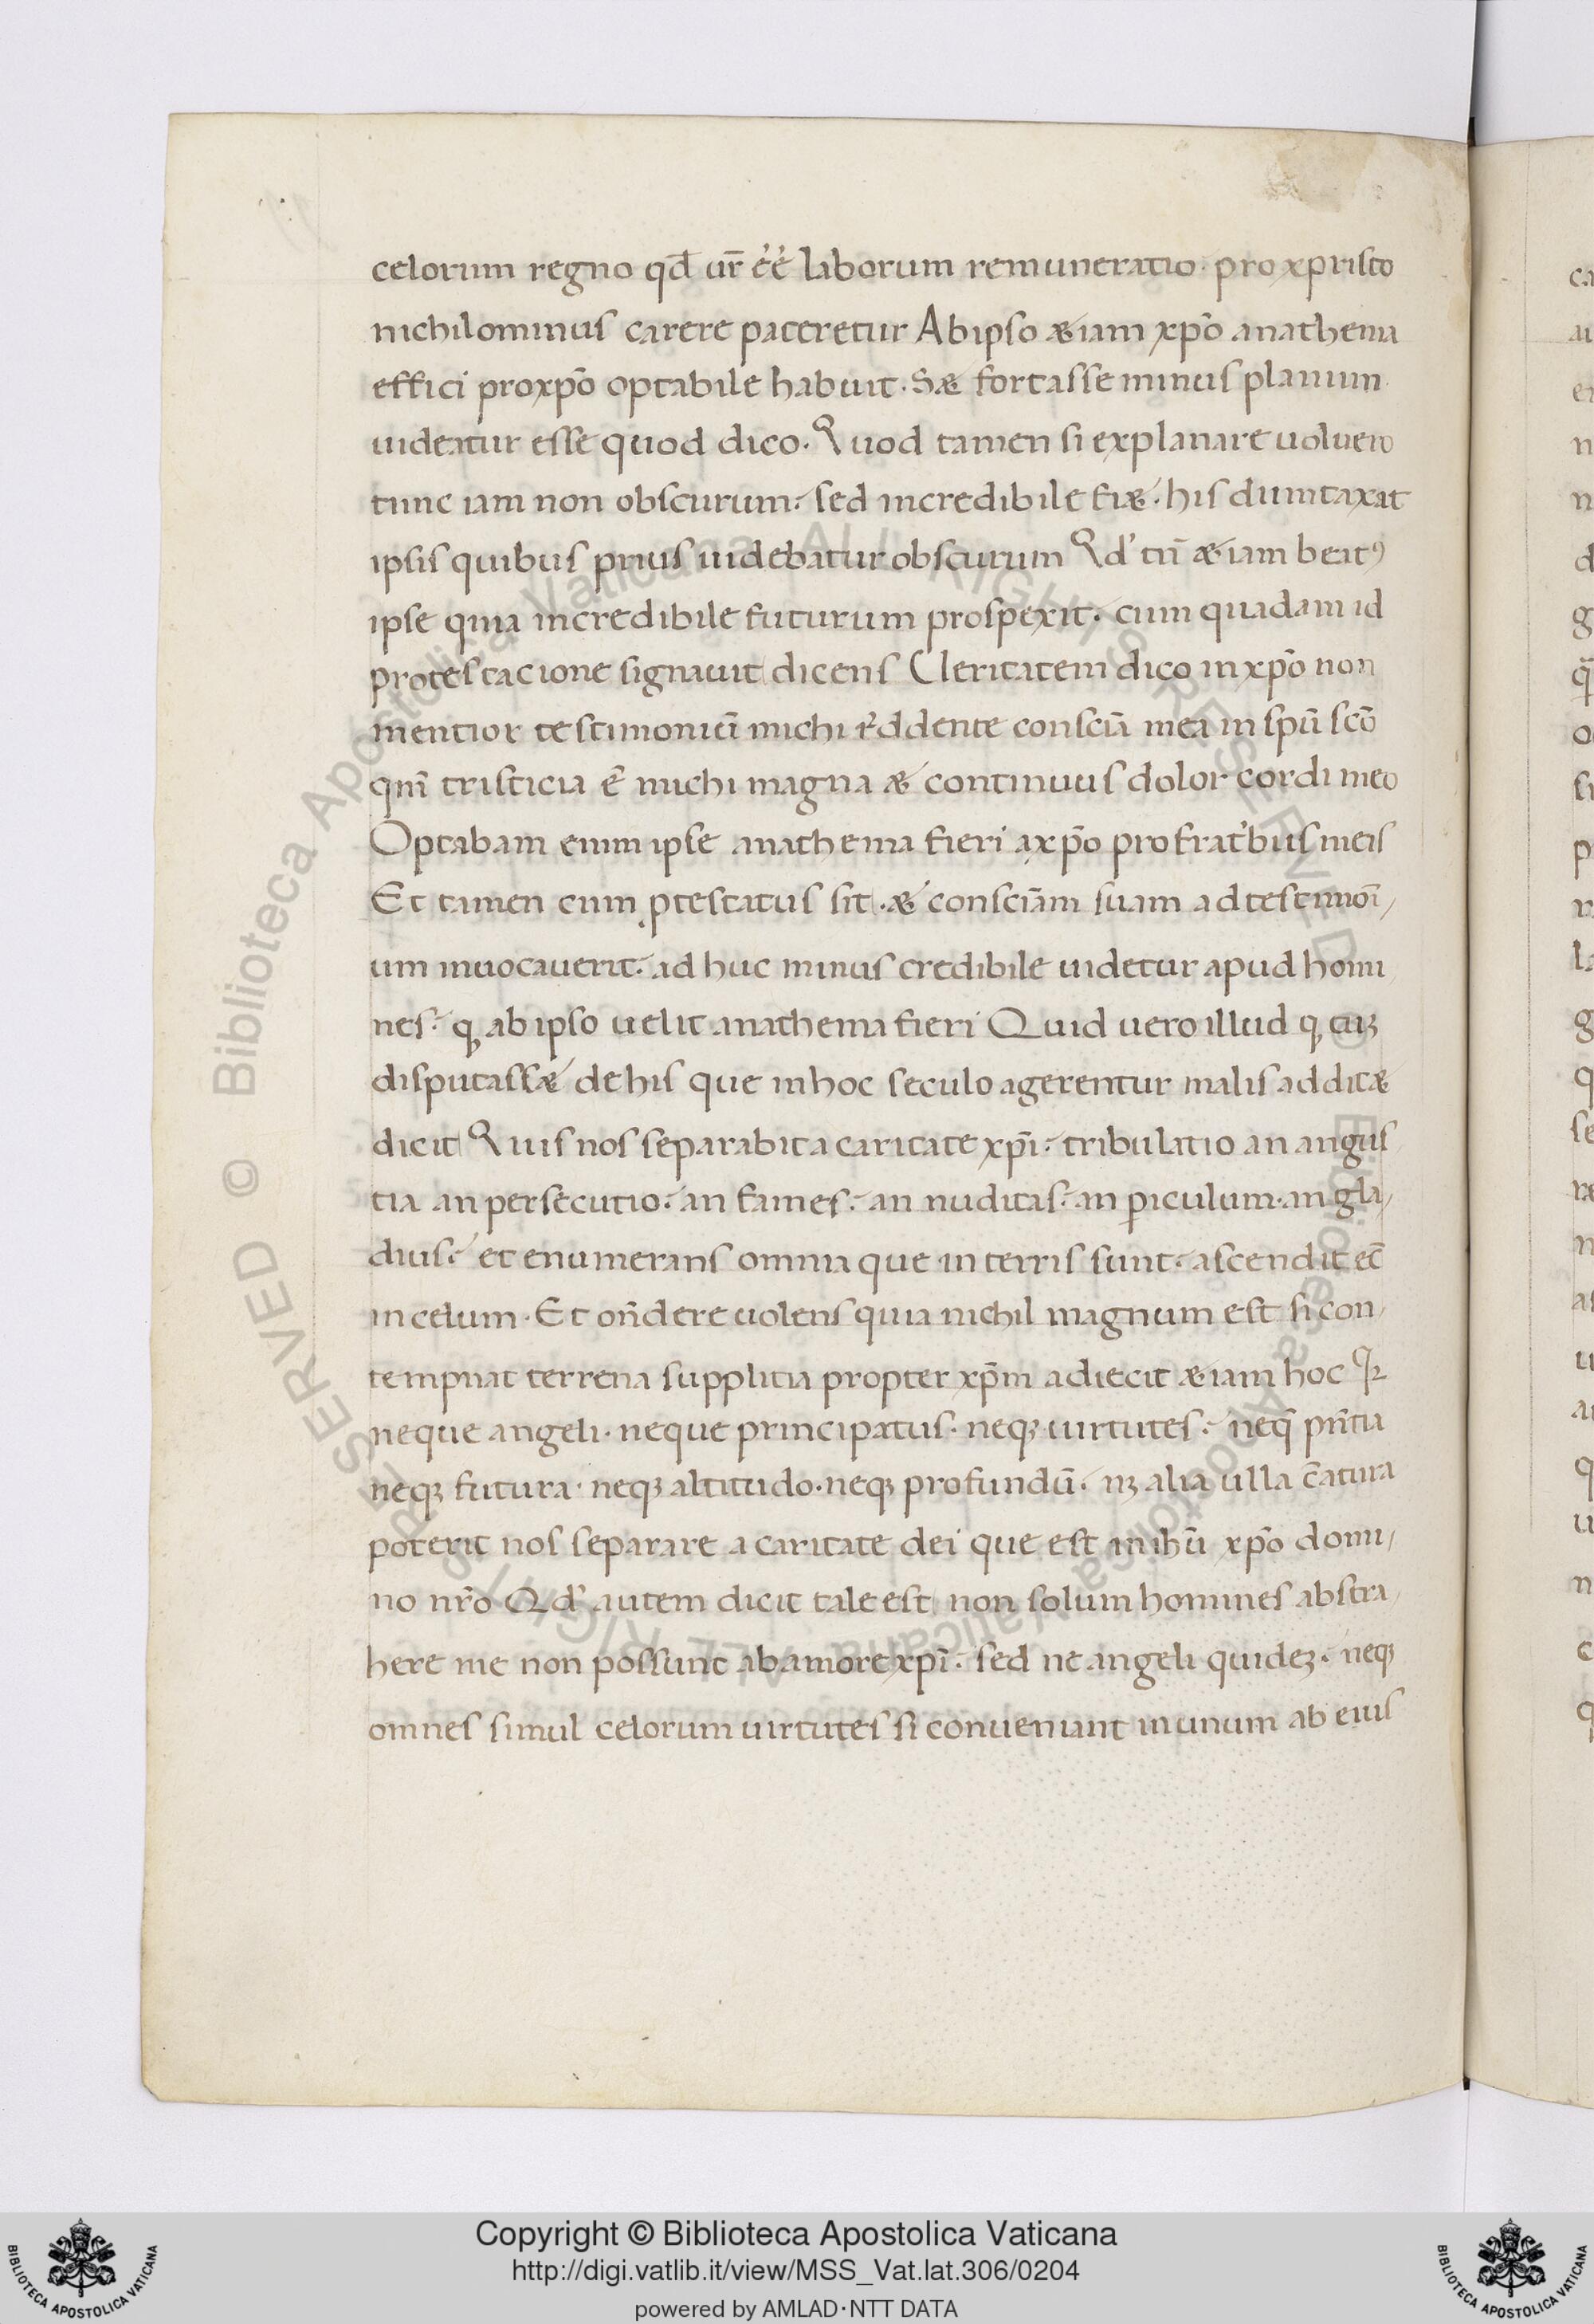 celorum regno qd̄ ur̄ ee̓ laborum remuneratio· pro xpristo
nichilominus carere pateretur Ab ipso æiam xp̄o anathema
effici pro xp̄o optabile habuit· Sæ fortasse minus planum
uideatur esse quod dico· Quod tamen si explanare uoluero
tunc iam non obscurum· sed incredibile fiæ· his dumtaxat
ipsis quibus prius uidebatur obscurum Qd̓ tn̄ æiam beatꝰ
ipse quia incredibile futurum prospexit· cum quadam id
protestacione signauit dicens Ueritatem dico in xp̄o non
mentior testimoniū michi rddente consciā mea in spū scō
qm̄ tristicia ē michi magna æ continuus dolor cordi meo
Optabam enim ipse anathema fieri a xp̄o pro frat̓bus meis
Et tamen cum ꝓtestatus sit· æ consciām suam ad testimoı̄/
um inuocauerit· ad huc minus credibile uidetur apud homi
nes· ꝙ ab ipso uelit anathema fieri Quid uero illud ꝙ cuꝫ
disputassæ de his que in hoc seculo agerentur malis additæ
dicit Quis nos separabit a caritate xp̄i· tribulatio an angus
tia an persecutio· an fames· an nuditas· an ꝑiculum· an gla/
dius· et enumerans omnia que in terris sunt· ascendit ec̄
in celum· Et on̄dere uolens quia nichil magnum est si con/
tempnat terrena supplitia propter xp̄m adiecit æiam hoc Qꝫ
neque angeli· neque principatus· neqꝫ uirtutes· neq̄ pn̄tia
neqꝫ futura· neqꝫ altitudo· neqꝫ profundū· nꝫ alia ulla c̄atura
poterit nos separare a caritate dei que est in ihū xp̄o domi/
no nr̄o Qd̓ autem dicit tale est non solum homines abstra/
here me non possunt ab amore xp̄i· sed ne angeli quideꝫ· neqꝫ
omnes simul celorum uirtutes si conueniant in unum ab eius
© Biblioteca Apostolica Vaticana ALL RIGHTS RESERVED
Copyright © Biblioteca Apostolica Vaticana
http://digi.vatlib.it/view/MSS_Vat.lat.306/0204
powered by AMLAD·NTT DATA
BIBLIOTECA APOSTOLICA VATICANA
BIBLIOTECA APOSTOLICA VATICANA